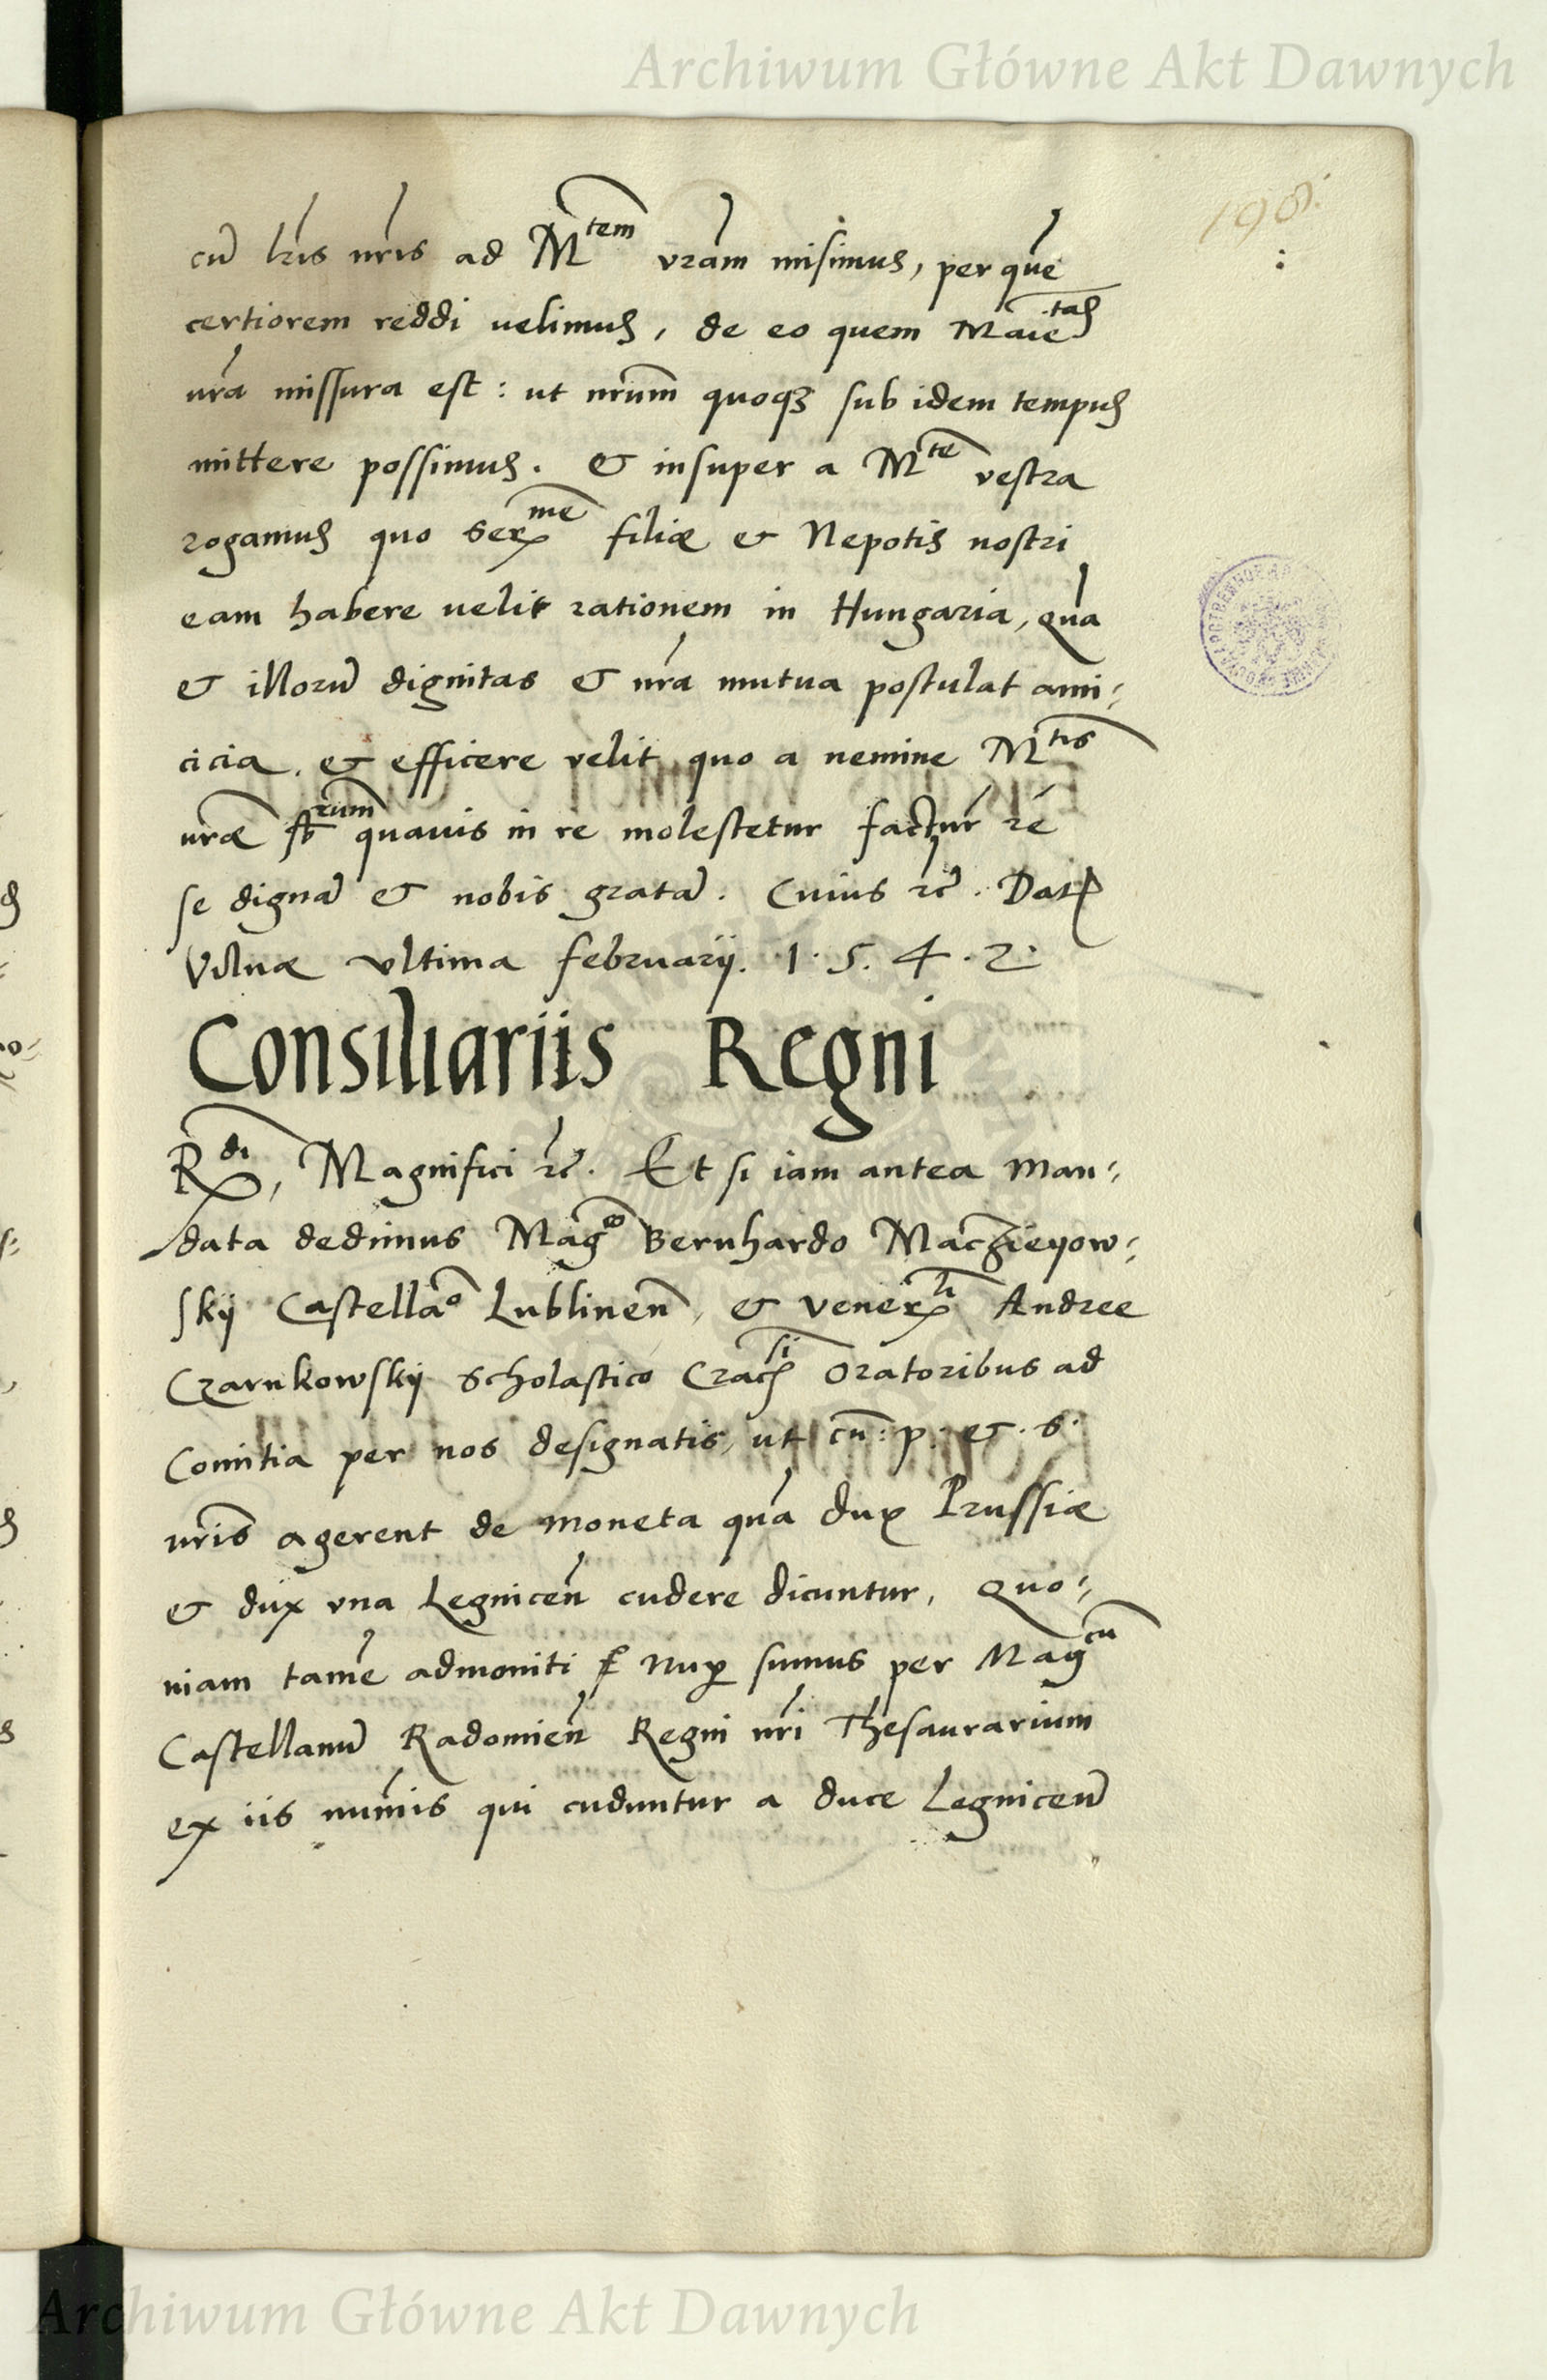 Archiwum Główne Akt Dawnych
198.
cū lr̄is nr̄is ad M^tem vr̄am misimus, per quē
certiorem reddi uelimus, de eo quem Maie^tas
ur̄a missura est: ut nr̄um quoq3 sub idem tempus
mittere possimus. & insuper a M^te vestra
rogamus quo Ser^me filiæ & Nepotis nostri
eam habere uelit rationem in Hungaria, qua
& illorū dignitas & nr̄a mutua postulat ami=
cicia. & efficere velit quo a nemine M^tis
uræ sb^rum quauis in re molestetur factur̄ rē
se dignā & nobis gratā. Cuius rc̄. Dat
Vilnæ vltima februarij. 1.5.4.2.
Consiliariis Regni
R^di, Magnifici rc̄. Et si iam antea man=
data dedimus Mag^co Bernhardo Maczieyow=
skij Castellā^o Lublinen̄, & vener^li Andree
Czarnkowskij Scholastico Crac^si oratoribus ad
Comitia per nos designatis, ut cū: p. &. S.
nr̄is agerent de moneta quā dux Prussiæ
& dux vna Legnicen̄ cudere dicuntur, Quo=
niam tamē admoniti nup sumus per Mag^cū
Castellanū Radomien̄ Regni nr̄i Thesaurarium
ex iis num̄is qui cuduntur a duce Legnicen̄
Archiwum Główne Akt Dawnych